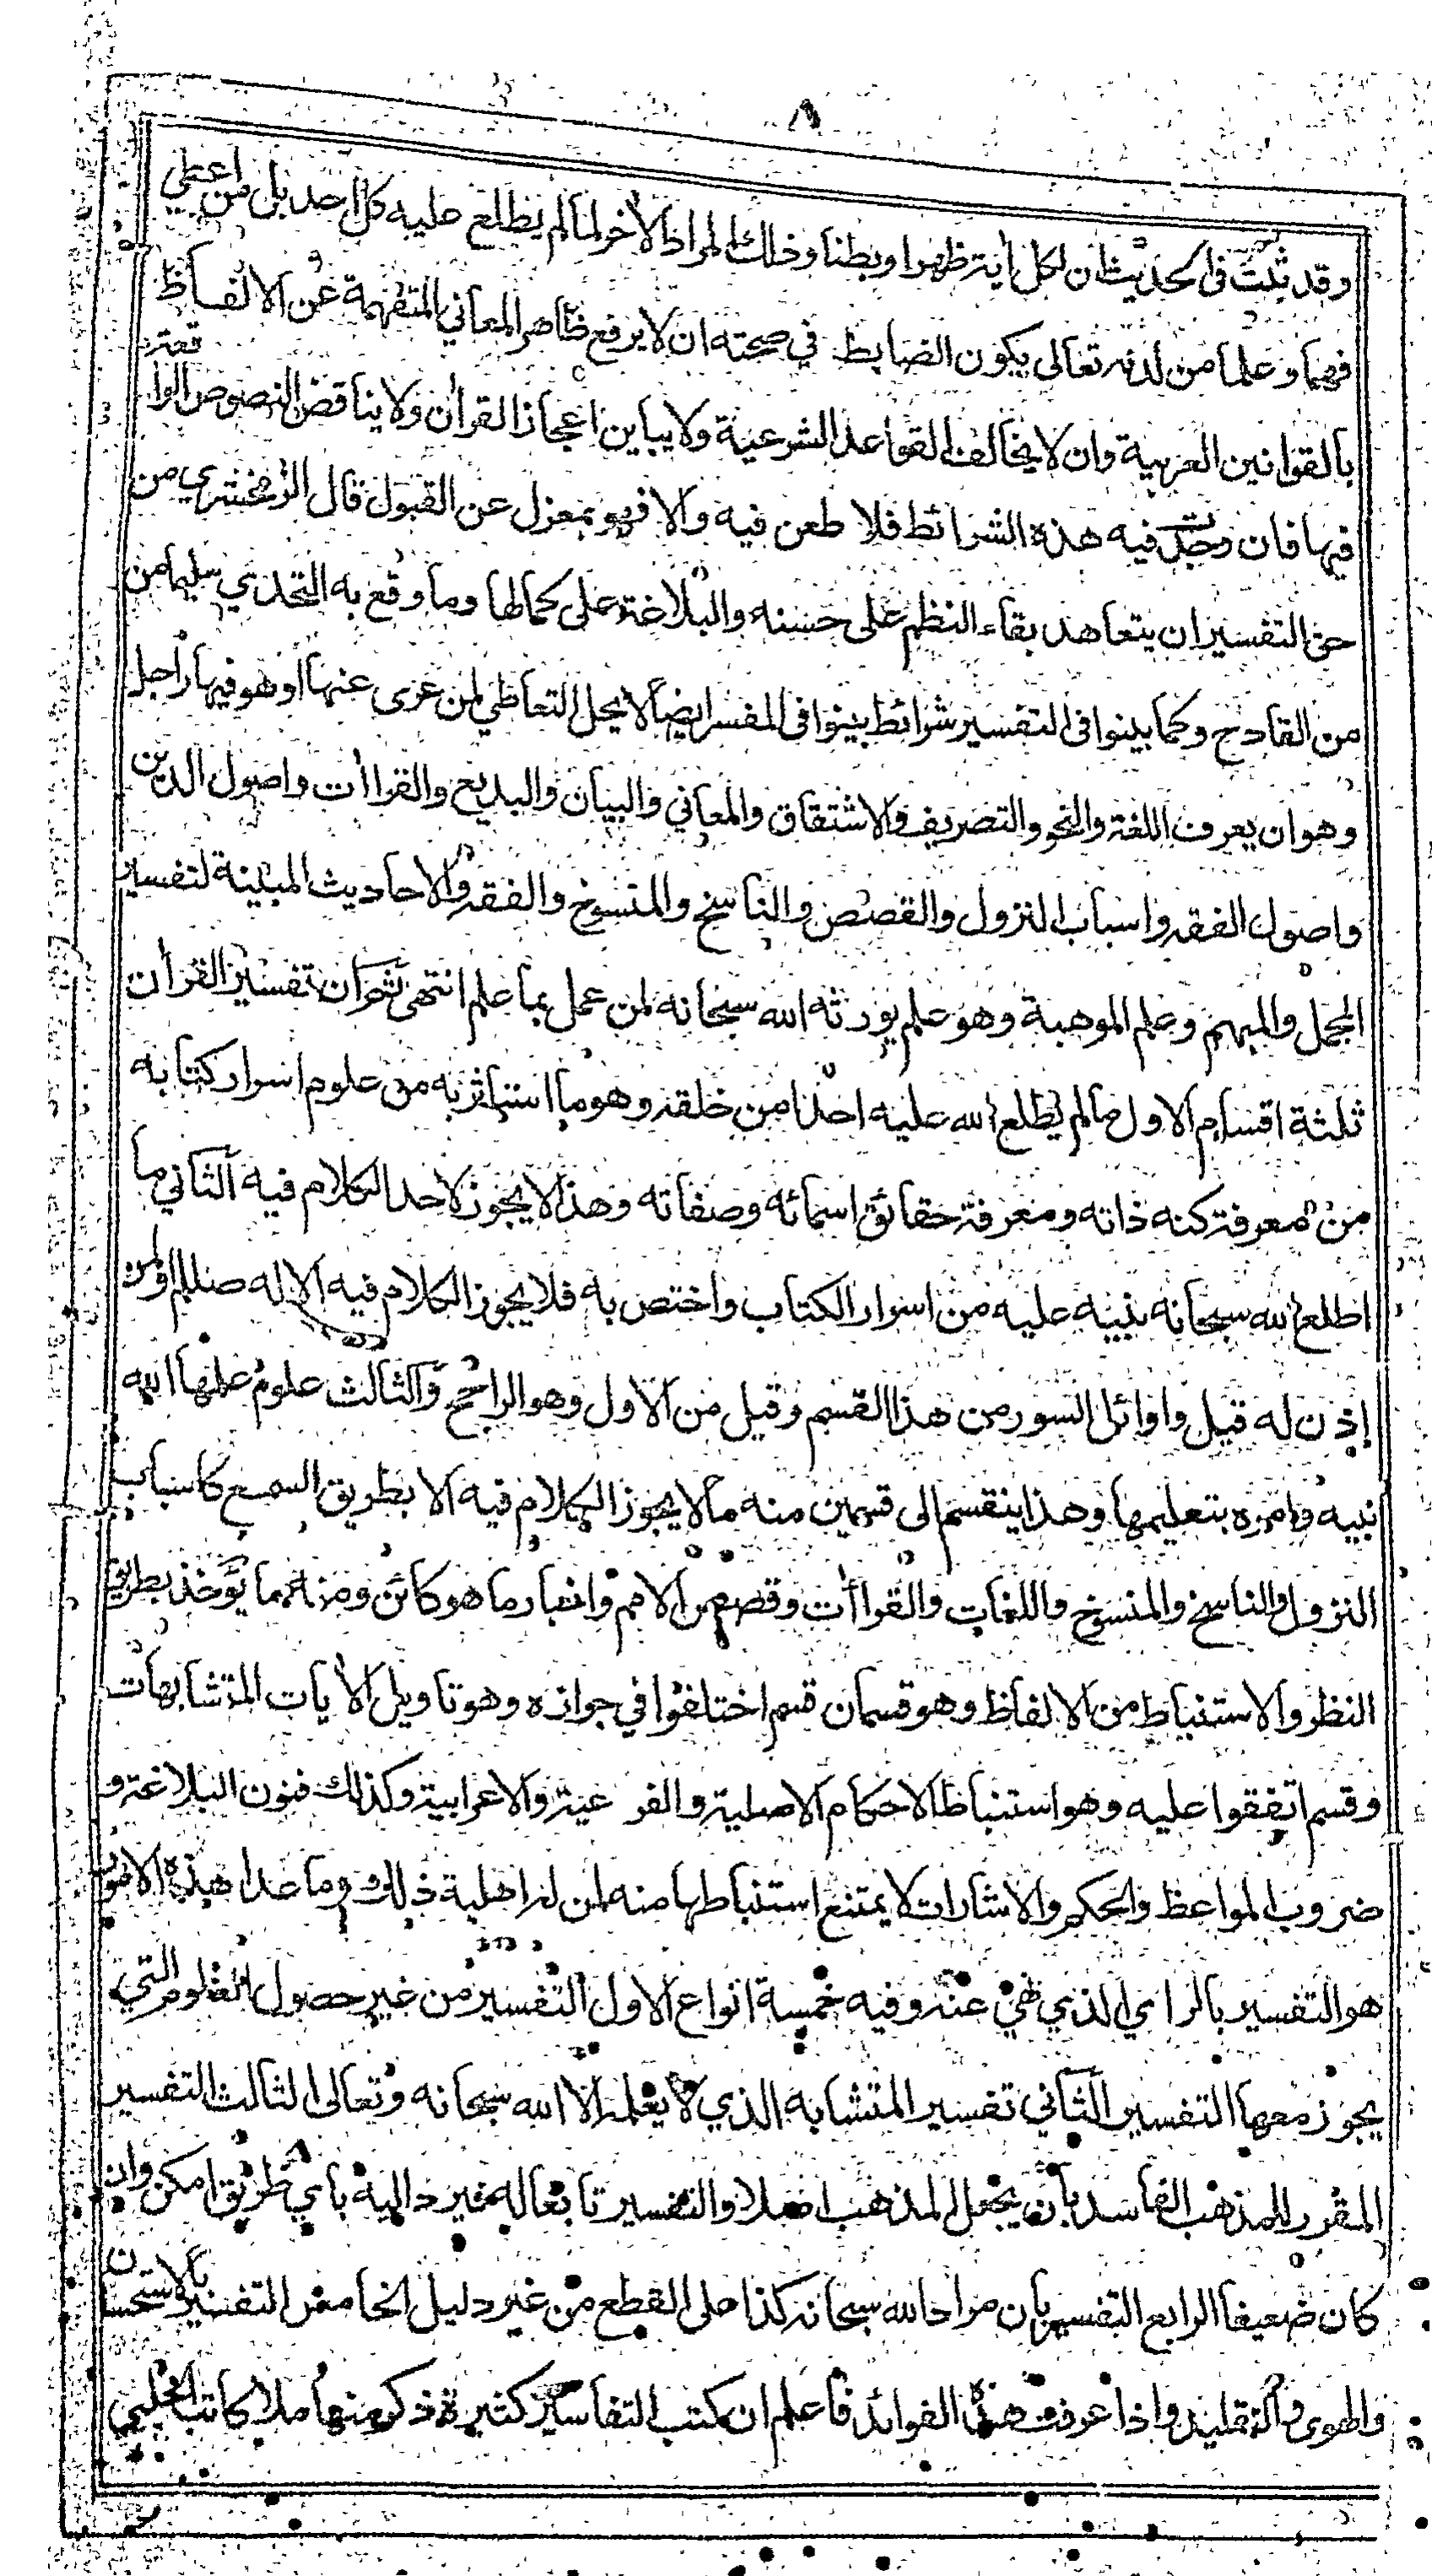 ٨
وقد ثبت في الحديث ان لكل اية ظهرا وبطنا وذلك المراد الاخر لما لم يطلع عليه كل احد بل من اعطي
فهما وعلما من لدنه تعالى يكون الضابط في صحته ان لا يرفع ظاهر المعاني المتفهمة عن الالفاظ
بالقوانين العربية وان لا يخالف القواعد الشرعية ولا يباين اعجاز القرأن ولا يناقض النصوص الواقعة
فيها فان وجدت فيه هذه الشرائط فلا طعن فيه والا فهو بمعزل عن القبول قال الزمخشري من
حق التفسير ان يتعاهد بقاء النظم على حسنه والبلاغة على كمالها وما وقع به التحدي سليما من
من القادح وكما بينوا في التفسير شرائط بينوا في المفسر ايضا لا يحل التعاطي لمن عرى عنها او هو فيها راجل
وهو ان يعرف اللغة والنحو والتصريف والاشتقاق والمعاني والبيان والبديع والقراأت واصول الدين
واصول الفقه واسباب النزول والقصص والناسخ والمنسوخ والفقه والاحاديث المبينة لتفسير
المجمل والمبهم وعلم الموهبة وهو علم يورثه الله سبحانه لمن عمل بما علم انتهى ثم ان تفسير القرأن
ثلثة اقسام الاول ما لم يطلع الله عليه احدا من خلقه وهو ما استاثر به من علوم اسرار كتابه
من معرفة كنه ذاته ومعرفة حقائق اسمائه وصفاته وهذا لا يجوز لاحد الكلام فيه الثاني ما
اطلع الله سبحانه نبيه عليه من اسرار الكتاب واختص به فلا يجوز الكلام فيه الا له صللم او لمن
إذن له قيل واوائل السور من هذا القسم وقيل من الاول وهو الراجح والثالث علوم علمها الله
نبيه وامره بتعليمها وهذا ينقسم الى قسمين منه ما لا يجوز الكلام فيه الا بطريق السمع كاسباب
النزول والناسخ والمنسوخ واللغات والقراأت وقصص الامم واخبار ما هو كائن ومنه مما يوخذ بطريق
النظر والاستنباط من الالفاظ وهو قسمان قسم اختلفوا في جوازه وهو تاويل الأيات المتشابهات
وقسم اتفقوا عليه وهو استنباط الاحكام الاصلية والفرعية والاعرابية وكذلك فنون البلاغة و
ضروب المواعظ والحكم والاشارات لا يمتنع استنباطها منه لمن له اهلية ذلك وما عدا هذه الامور
هو التفسير بالراي الذي نهي عنه وفيه خمسة انواع الاول التفسير من غير حصول العلوم التي
يجوز معها التفسير الثاني تفسير المتشابه الذي لا يعلمه الا الله سبحانه وتعالى الثالث التفسير
المقرر للمذهب الفاسد بان يجعل المذهب اصلا والتفسير تابعا له فيرد اليه باي طريق امكن وان
كان ضعيفا الرابع التفسير بان مراد الله سبحانه كذا على القطع من غير دليل الخامس التفسير بالاستحسان
والهوى والتقليد واذا عرفت هذه الفوائد فاعلم ان كتب التفاسير كثيرة ذكر منها ملا كاتب الچلپي